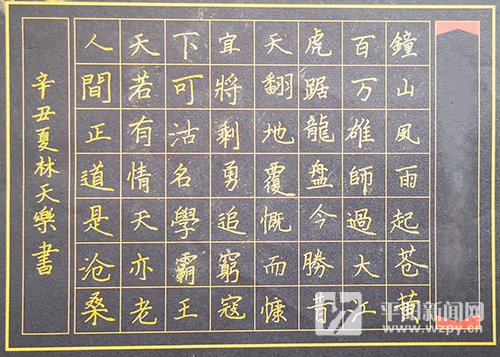 鐘山風雨起蒼黄
百万雄師過大江
虎踞龍盤今勝昔
天翻地覆慨而慷
宜將剩勇追窮寇
下可沽名學霸王
天若有情天亦老
人間正道是沧桑
辛丑夏林天樂書
平阳新闻网
www.wzpy.cn